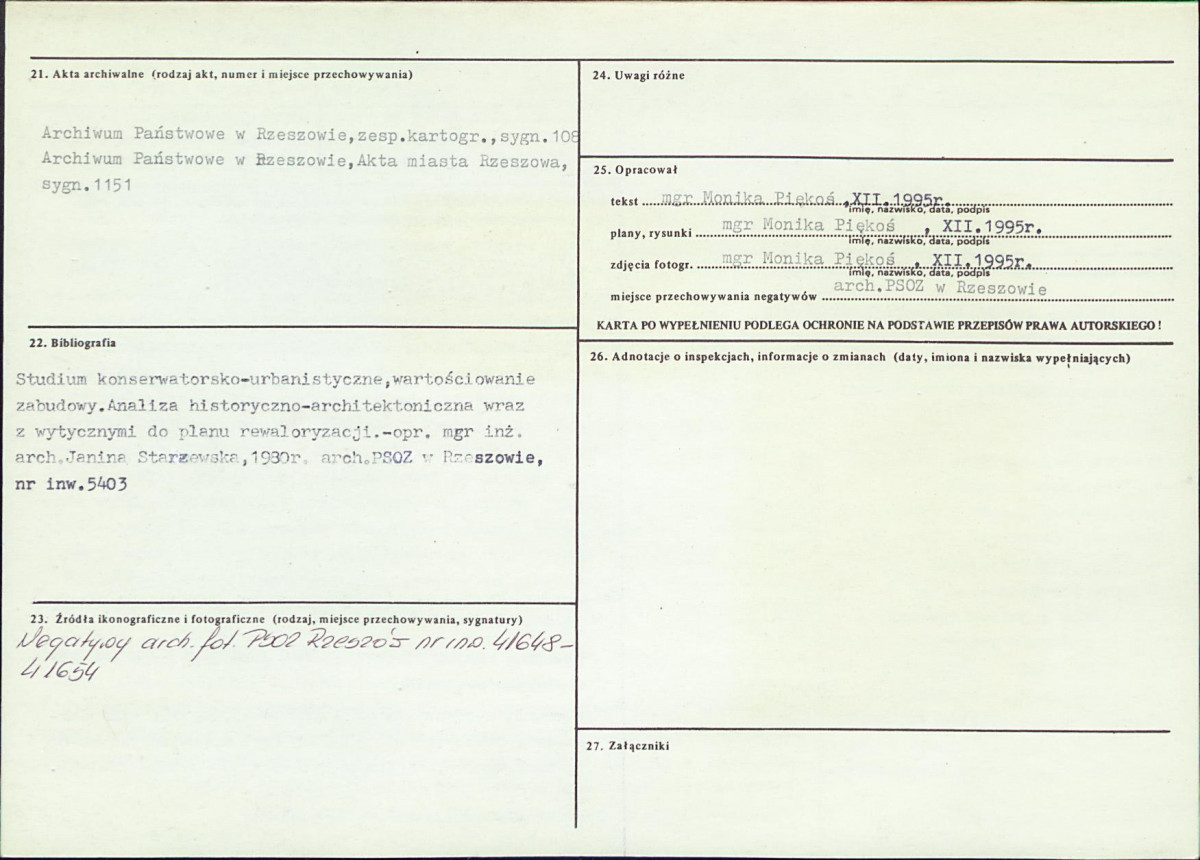 21. Akta archiwalne (rodzaj akt, numer i miejsce przechowywania)
Archiwum Państwowe w Rzeszowie,zesp.kartogr.,sygn.108
Archiwum Państwowe w Rzeszowie,Akta miasta Rzeszowa,
sygn.1151
22. Bibliografia
Studium konserwatorsko-urbanistyczne,wartościowanie
zabudowy.Analiza historyczno-architektoniczna wraz
z wytycznymi do planu rewaloryzacji.-opr. mgr inż.
arch.Janina Starzewska,1980r. arch.PSOZ w Rzeszowie,
nr inw.5403
23. Źródła ikonograficzne i fotograficzne (rodzaj, miejsce przechowywania, sygnatury)
Negatywy arch. fot. PSOZ Rzeszów nr inw. 41648-
41654
24. Uwagi różne
25. Opracował
tekst mgr Monika Piękoś ,XII.1995r.
imię, nazwisko, data, podpis
plany, rysunki mgr Monika Piękoś , XII.1995r.
imię, nazwisko, data, podpis
zdjęcia fotogr. mgr Monika Piękoś , XII.1995r.
imię, nazwisko, data, podpis
miejsce przechowywania negatywów arch.PSOZ w Rzeszowie
KARTA PO WYPEŁNIENIU PODLEGA OCHRONIE NA PODSTAWIE PRZEPISÓW PRAWA AUTORSKIEGO !
26. Adnotacje o inspekcjach, informacje o zmianach (daty, imiona i nazwiska wypełniających)
27. Załączniki